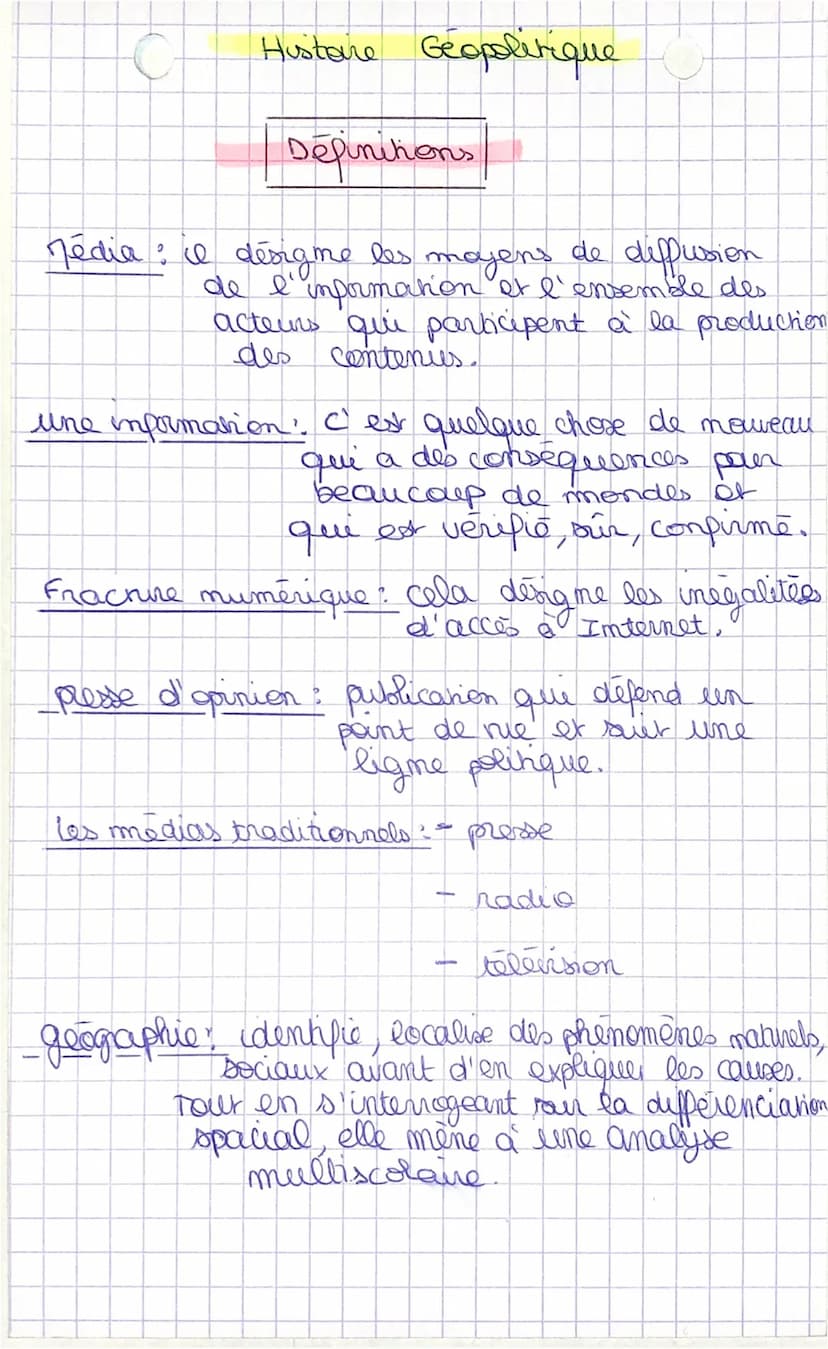 Histoire Géopolitique
Définitions
Média : il désigne les moyens de diffusion
de l'information et l'ensemble des
acteurs qui participent à la production
des contenus.
une information : C'est quelque chose de nouveau
qui a des conséquences pour
beaucoup de mondes et
qui est vérifié, sûr, confirmé.
Fracture numérique : cela désigne les inégalités
d'accès à Internet.
presse d'opinion : publication qui défend un
point de vue et suit une
ligne politique.
les médias traditionnels : - presse
- radio
- télévision
géographie : identifie, localise des phénomènes naturels,
sociaux avant d'en expliquer les causes.
Tout en s'interrogeant sur la différenciation
spacial, elle mène à une analyse
multiscolaire.